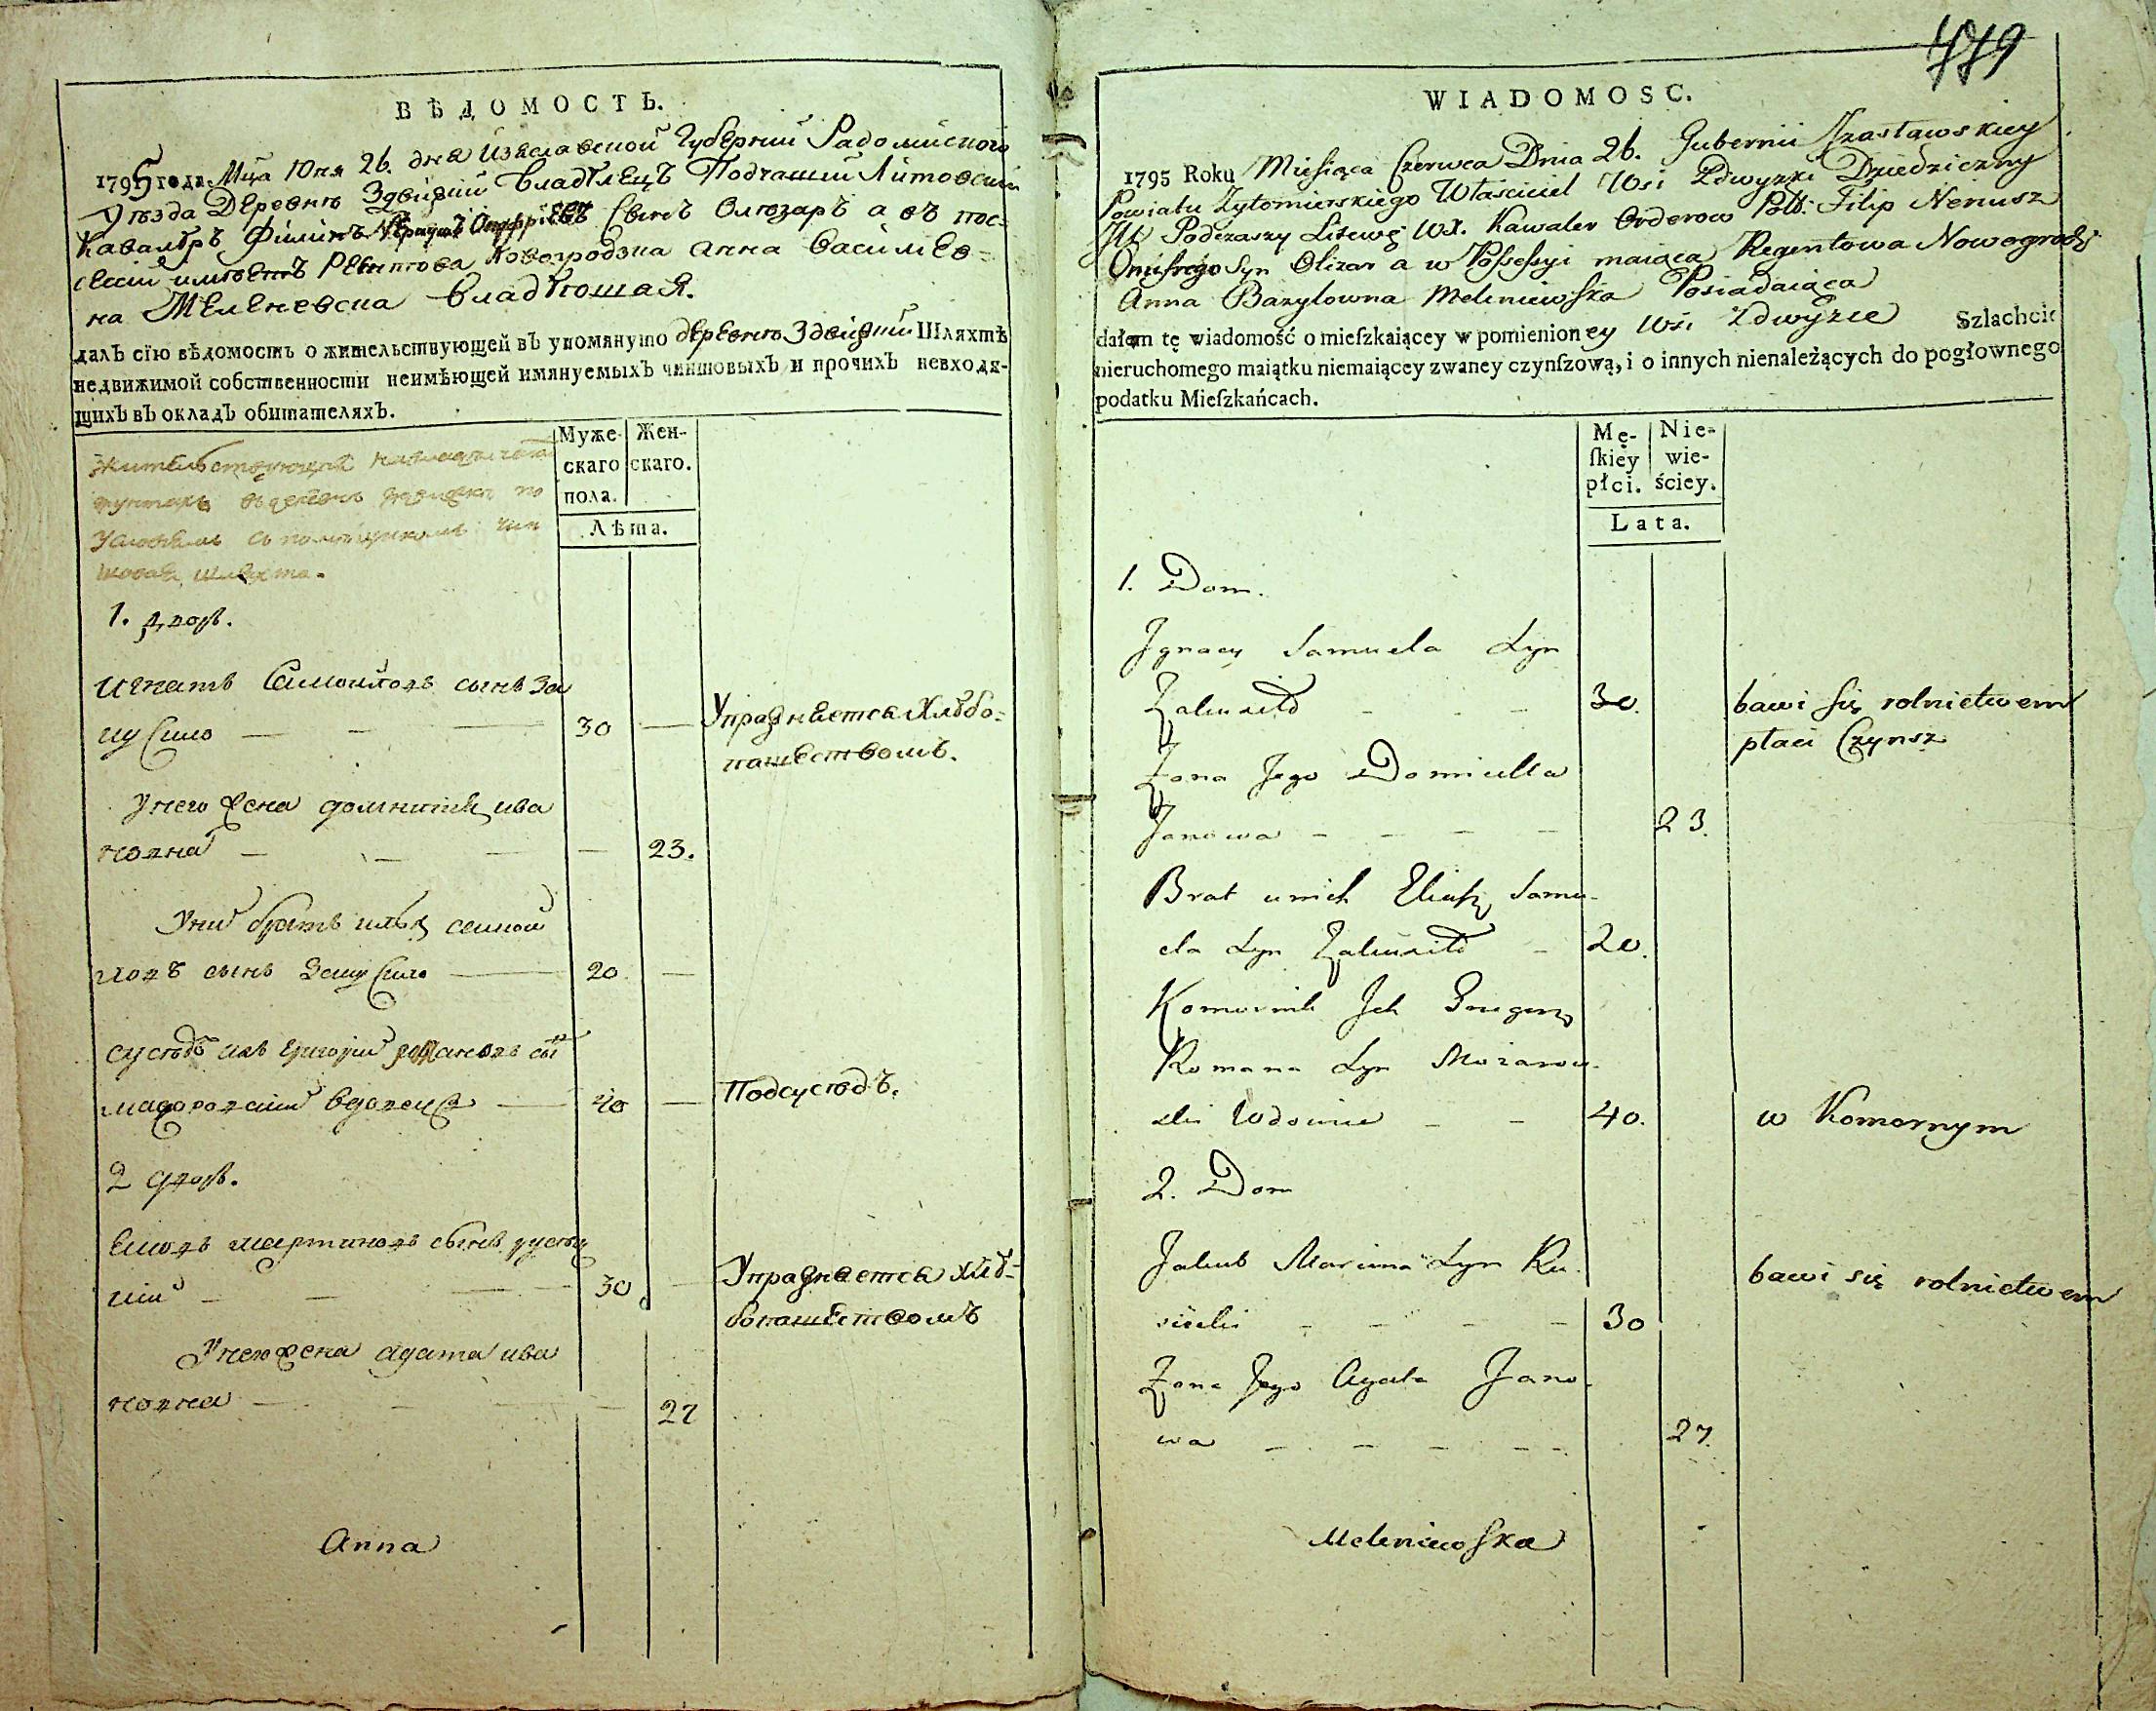 ВѢДОМОСТЬ.
1795 года Мца Юня 26. дня Изяславской Губернии Радомисского
Уѣзда Деревнѣ Здвижки Владѣлецъ Подчаший Литовский
Кавалѣръ Филипъ Онуфріевъ Сынъ Олѣзаръ а въ пос-
сесіи имѣетъ Реентова Новогродзка Анна Василев-
на Меленевска Владѣющая.
далъ сїю вѣдомость о жительствующей въ упомянуто деревнѣ Здвижки Шляхтѣ
недвижимой собственности неимѣющей имянуемыхъ чиншовыхъ и прочихъ невходя-
щихъ въ окладъ обитателяхъ.
Муже-
скаго
пола.
Жен-
скаго.
Лѣта.
шовая шляхта.
1. дворъ.
Игнатъ Самойловъ сынъ За
цу 30 — Упражняется хлѣбо-
пашествомъ.
У него жена домницеля ива
новна — 23.
У ни братъ илья самой
ловъ сынъ 20 —
сусѣдъ ихъ григорий романовъ сы
вдовецъ — 40 — Подсусѣдъ.
2 дворъ.
Яковъ мартиновъ сынъ русѣц
кий — 30 — Упражняется хлѣ-
бопашествомъ
У него жена агата ива
новна — 27
Anna
779
WIADOMOSC.
1795 Roku Miesiąca Czerwca Dnia 26. Gubernii Izasławskiey
Powiatu Zytomirskiego Właściciel Wsi Zdwyzki Dziedziczny
JW Podczaszy Litewsg WX. Kawaler Orderow Pols: Filip Neriusz
Onufrego Syn Olizar a w Possessyi maiąca Regentowa Nowogrodz
Anna Bazylowna Meleniewska Posiadaiąca
dałam tę wiadomość o mieſzkaiącey w pomienioney Wsi Zdwyżce Szlachcie
nieruchomego maiątku niemaiącey zwaney czynſzową, i o innych nienależących do pogłownego
podatku Mieſzkańcach.
Mę-
ſkiey
płci.
Nie-
wie-
ściey.
Lata.
1. Dom.
Jgnacy Samuela Syn
30. bawi się rolnictwem
płaci Czynsz
Zona Jego Domicella
Janowa - - - - 23.
Brat unich Eliasz Samu-
ela Syn - 20.
Komornik Jch Grzegorz
Romana Syn Mozarow-
ski Wdowiec - - 40. w Komornym
2. Dom
Jakub Marcina Syn Ru-
siecki - - - - 30 bawi się rolnictwem
Zona Jego Agata Jano-
wa - - - - - 27.
Meleniewska